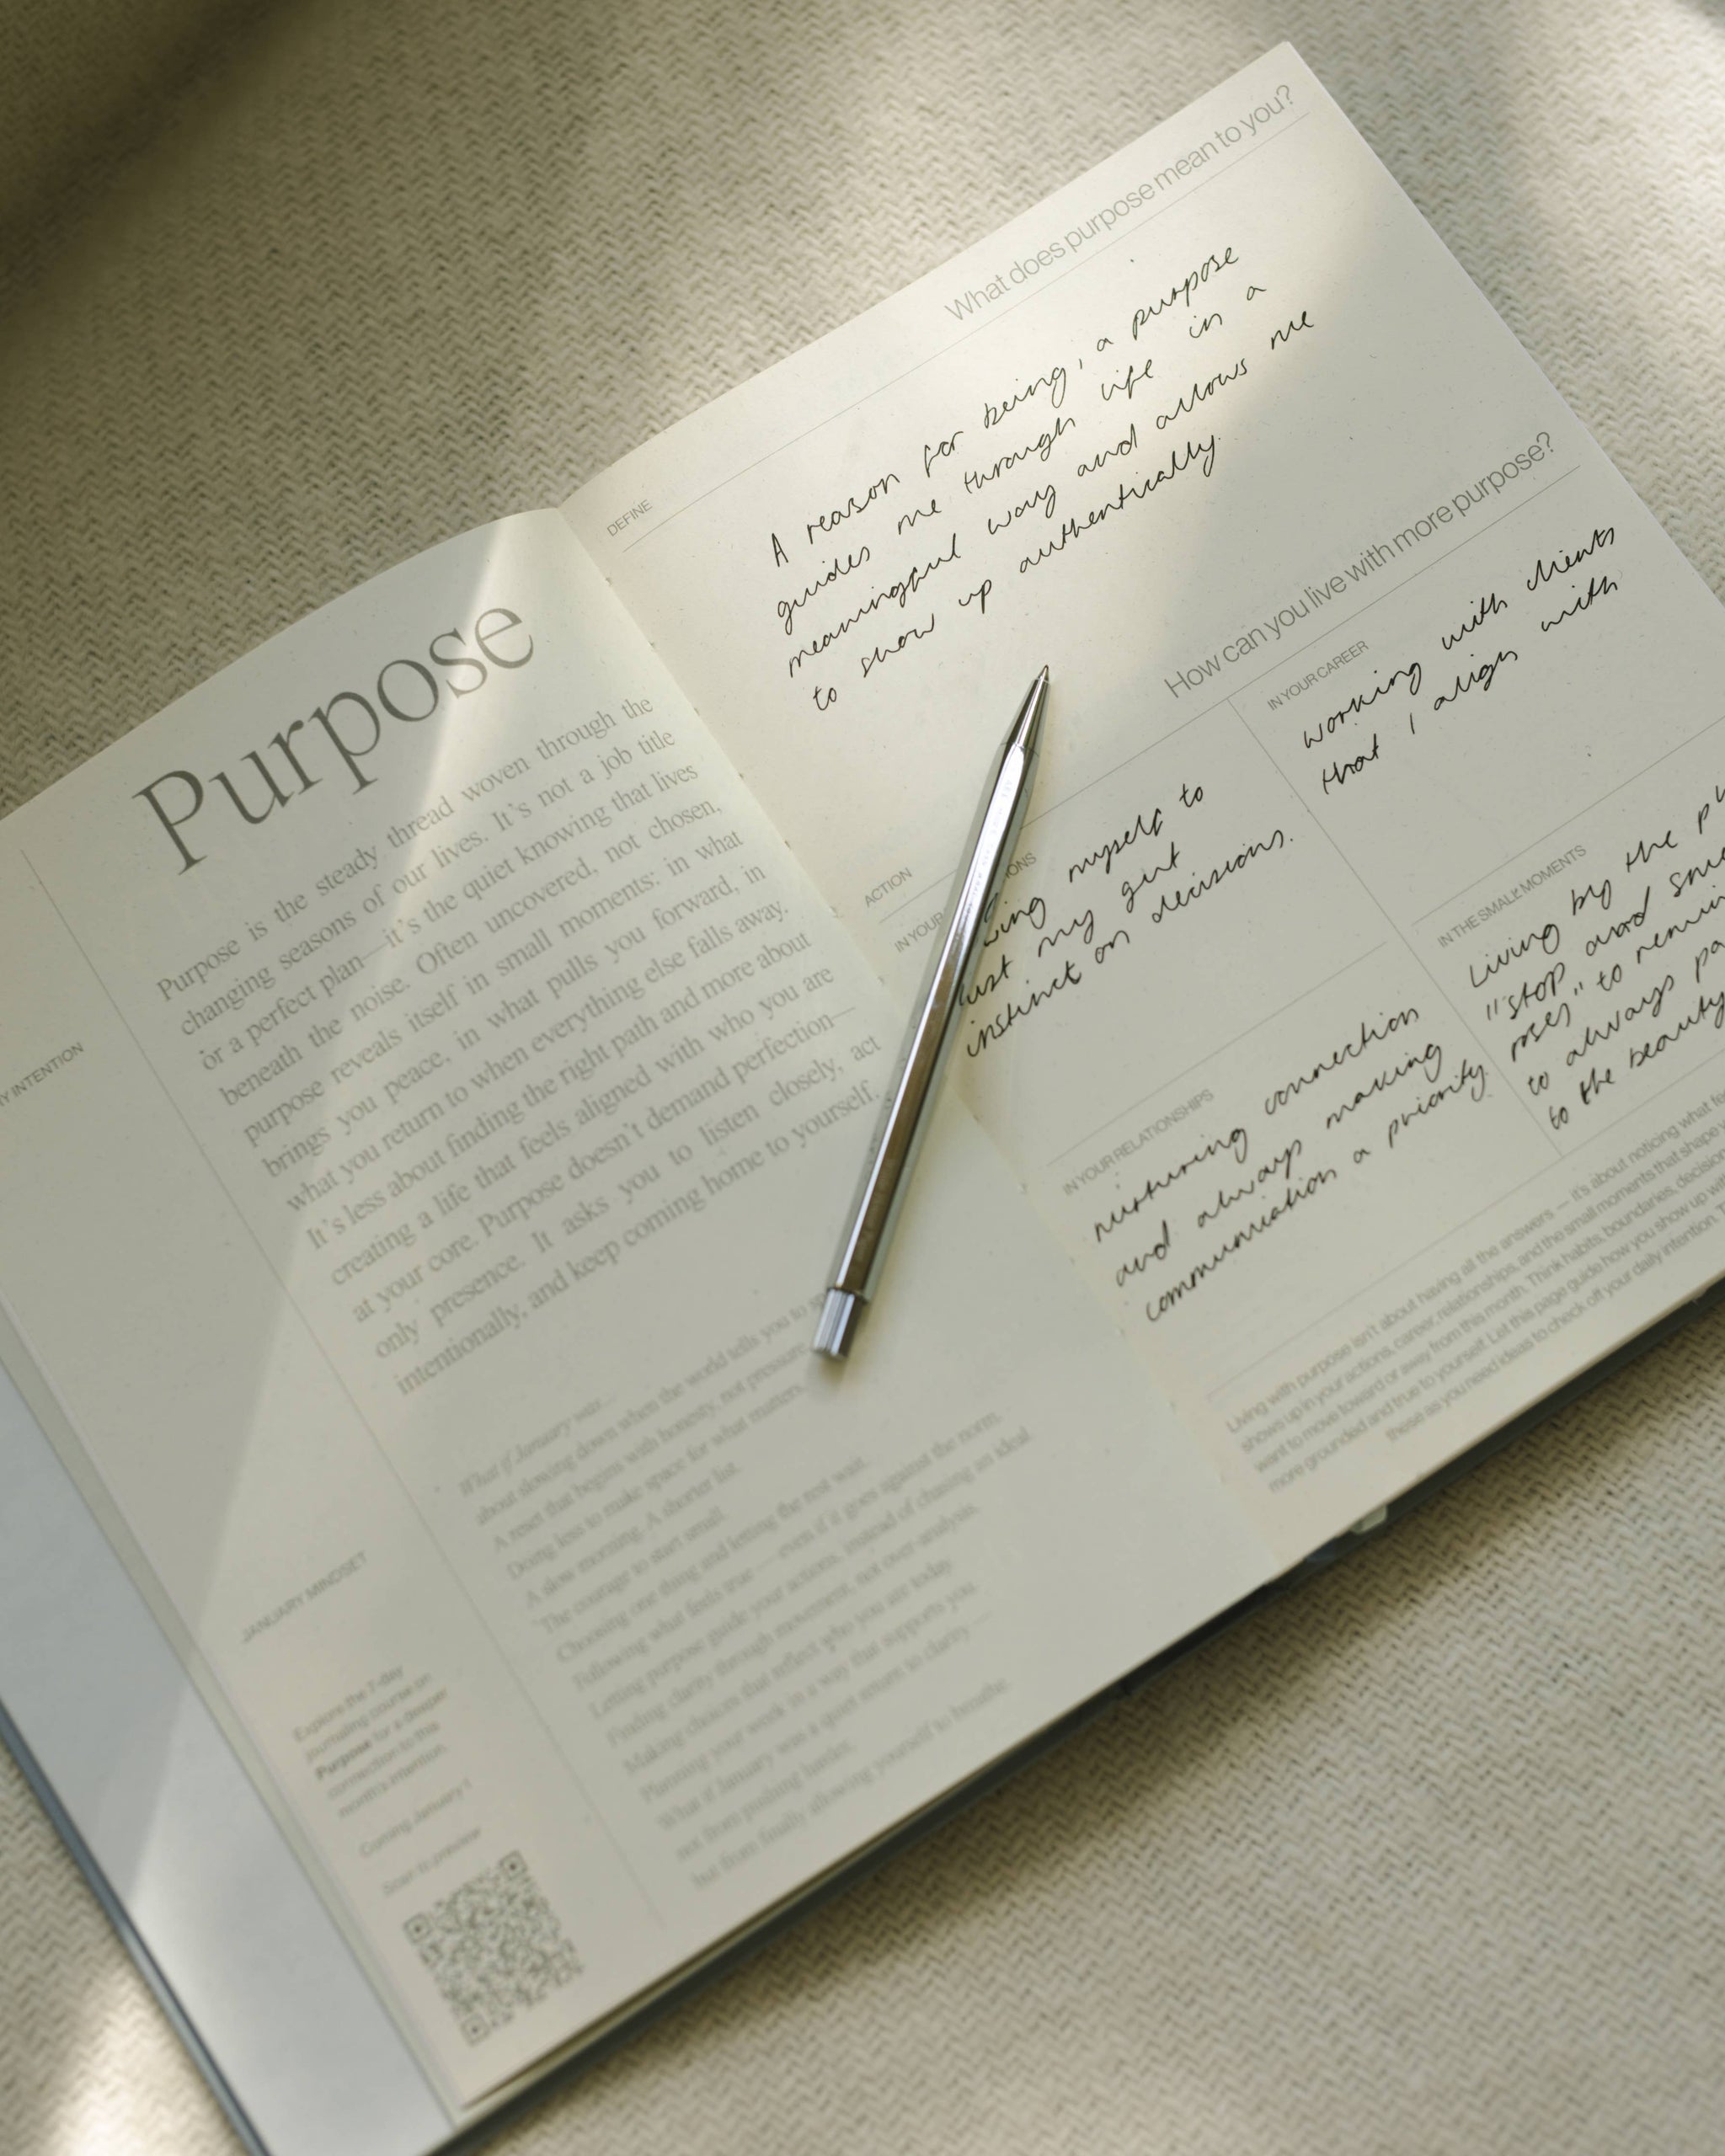 Purpose
Purpose is the steady thread woven through the
changing seasons of our lives. It's not a job title
or a perfect plan—it's the quiet knowing that lives
beneath the noise. Often uncovered, not chosen,
purpose reveals itself in small moments: in what
brings you peace, in what pulls you forward, in
what you return to when everything else falls away.
It's less about finding the right path and more about
creating a life that feels aligned with who you are
at your core. Purpose doesn't demand perfection—
only presence. It asks you to listen closely, act
intentionally, and keep coming home to yourself.
INTENTION
What if January was...
about slowing down when the world tells you to
A reset that begins with honesty, not pressure.
Doing less to make space for what matters.
A slow morning. A shorter list.
The courage to start small.
Choosing one thing and letting the rest wait.
Following what feels true — even if it goes against the norm.
Letting purpose guide your actions, instead of chasing an ideal.
Finding clarity through movement, not over-analysis.
Making choices that reflect who you are today.
Planning your work in a way that supports you.
What if January was a quiet return to clarity —
not from pushing harder,
but from finally allowing yourself to breathe.
JANUARY MINDSET
Explore the 7-day
journaling course on
Purpose for a deeper
connection to this
month's intention.
Coming January 1
Scan to preview
What does purpose mean to you?
DEFINE
A reason for being, a purpose
guides me through life in a
meaningful way and allows me
to show up authentically.
How can you live with more purpose?
ACTION
IN YOUR
instinct on decisions.
myself to
my gut
IN YOUR CAREER
working with clients
that I align with
IN YOUR RELATIONSHIPS
nurturing connection
and always making
communication a priority.
IN THE SMALL MOMENTS
Living by the
"stop and
roses" to
to always
to the beauty
Living with purpose isn't about having all the answers — it's about noticing what
shows up in your actions, career, relationships, and the small moments that shape
want to move toward or away from this month. Think habits, boundaries,
more grounded and true to yourself. Let this page guide how you show up
these as you need ideas to check off your daily intention.